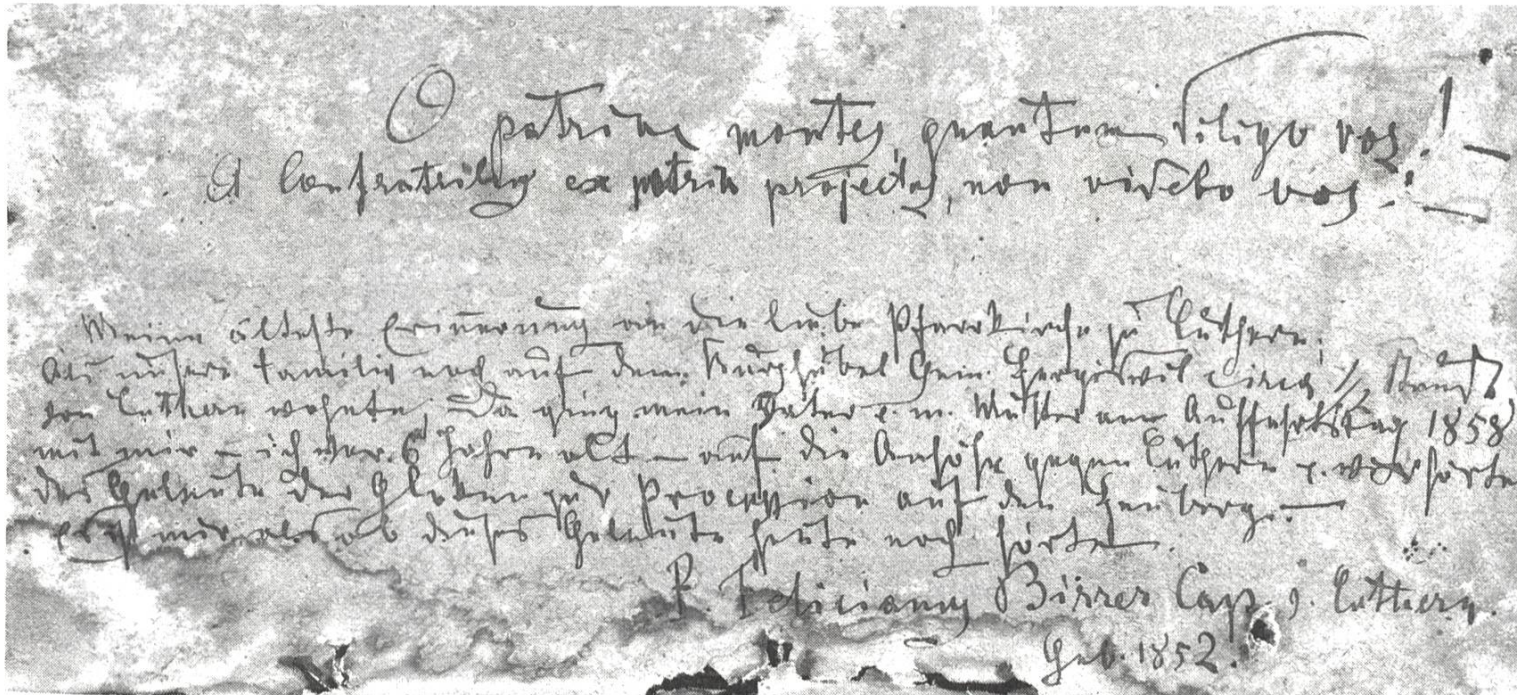 O patriae montes, quantum diligo vos! —
A Confratribus ex patria projectus, non videbo vos! —
Meine älteste Erinnerung an die liebe Pfarrkirche zu Luthern.
Als unsere Familie noch auf dem Gem. Hergiswil circa 1/2 Stund
von Luthern wohnte, Da ging mein Vater u. m. Mutter am Auffahrtstag 1858
mit mir – ich war 6 Jahre alt – auf die Anhöhe gegen Luthern u. wir hörten
das Geläute der Gloken zur Procession auf den Heuberg. —
Es ist mir als ob dieses Geläute heute noch hörte.
P. Felicianus Birrer Cap. v. Luthern.
Geb. 1852.